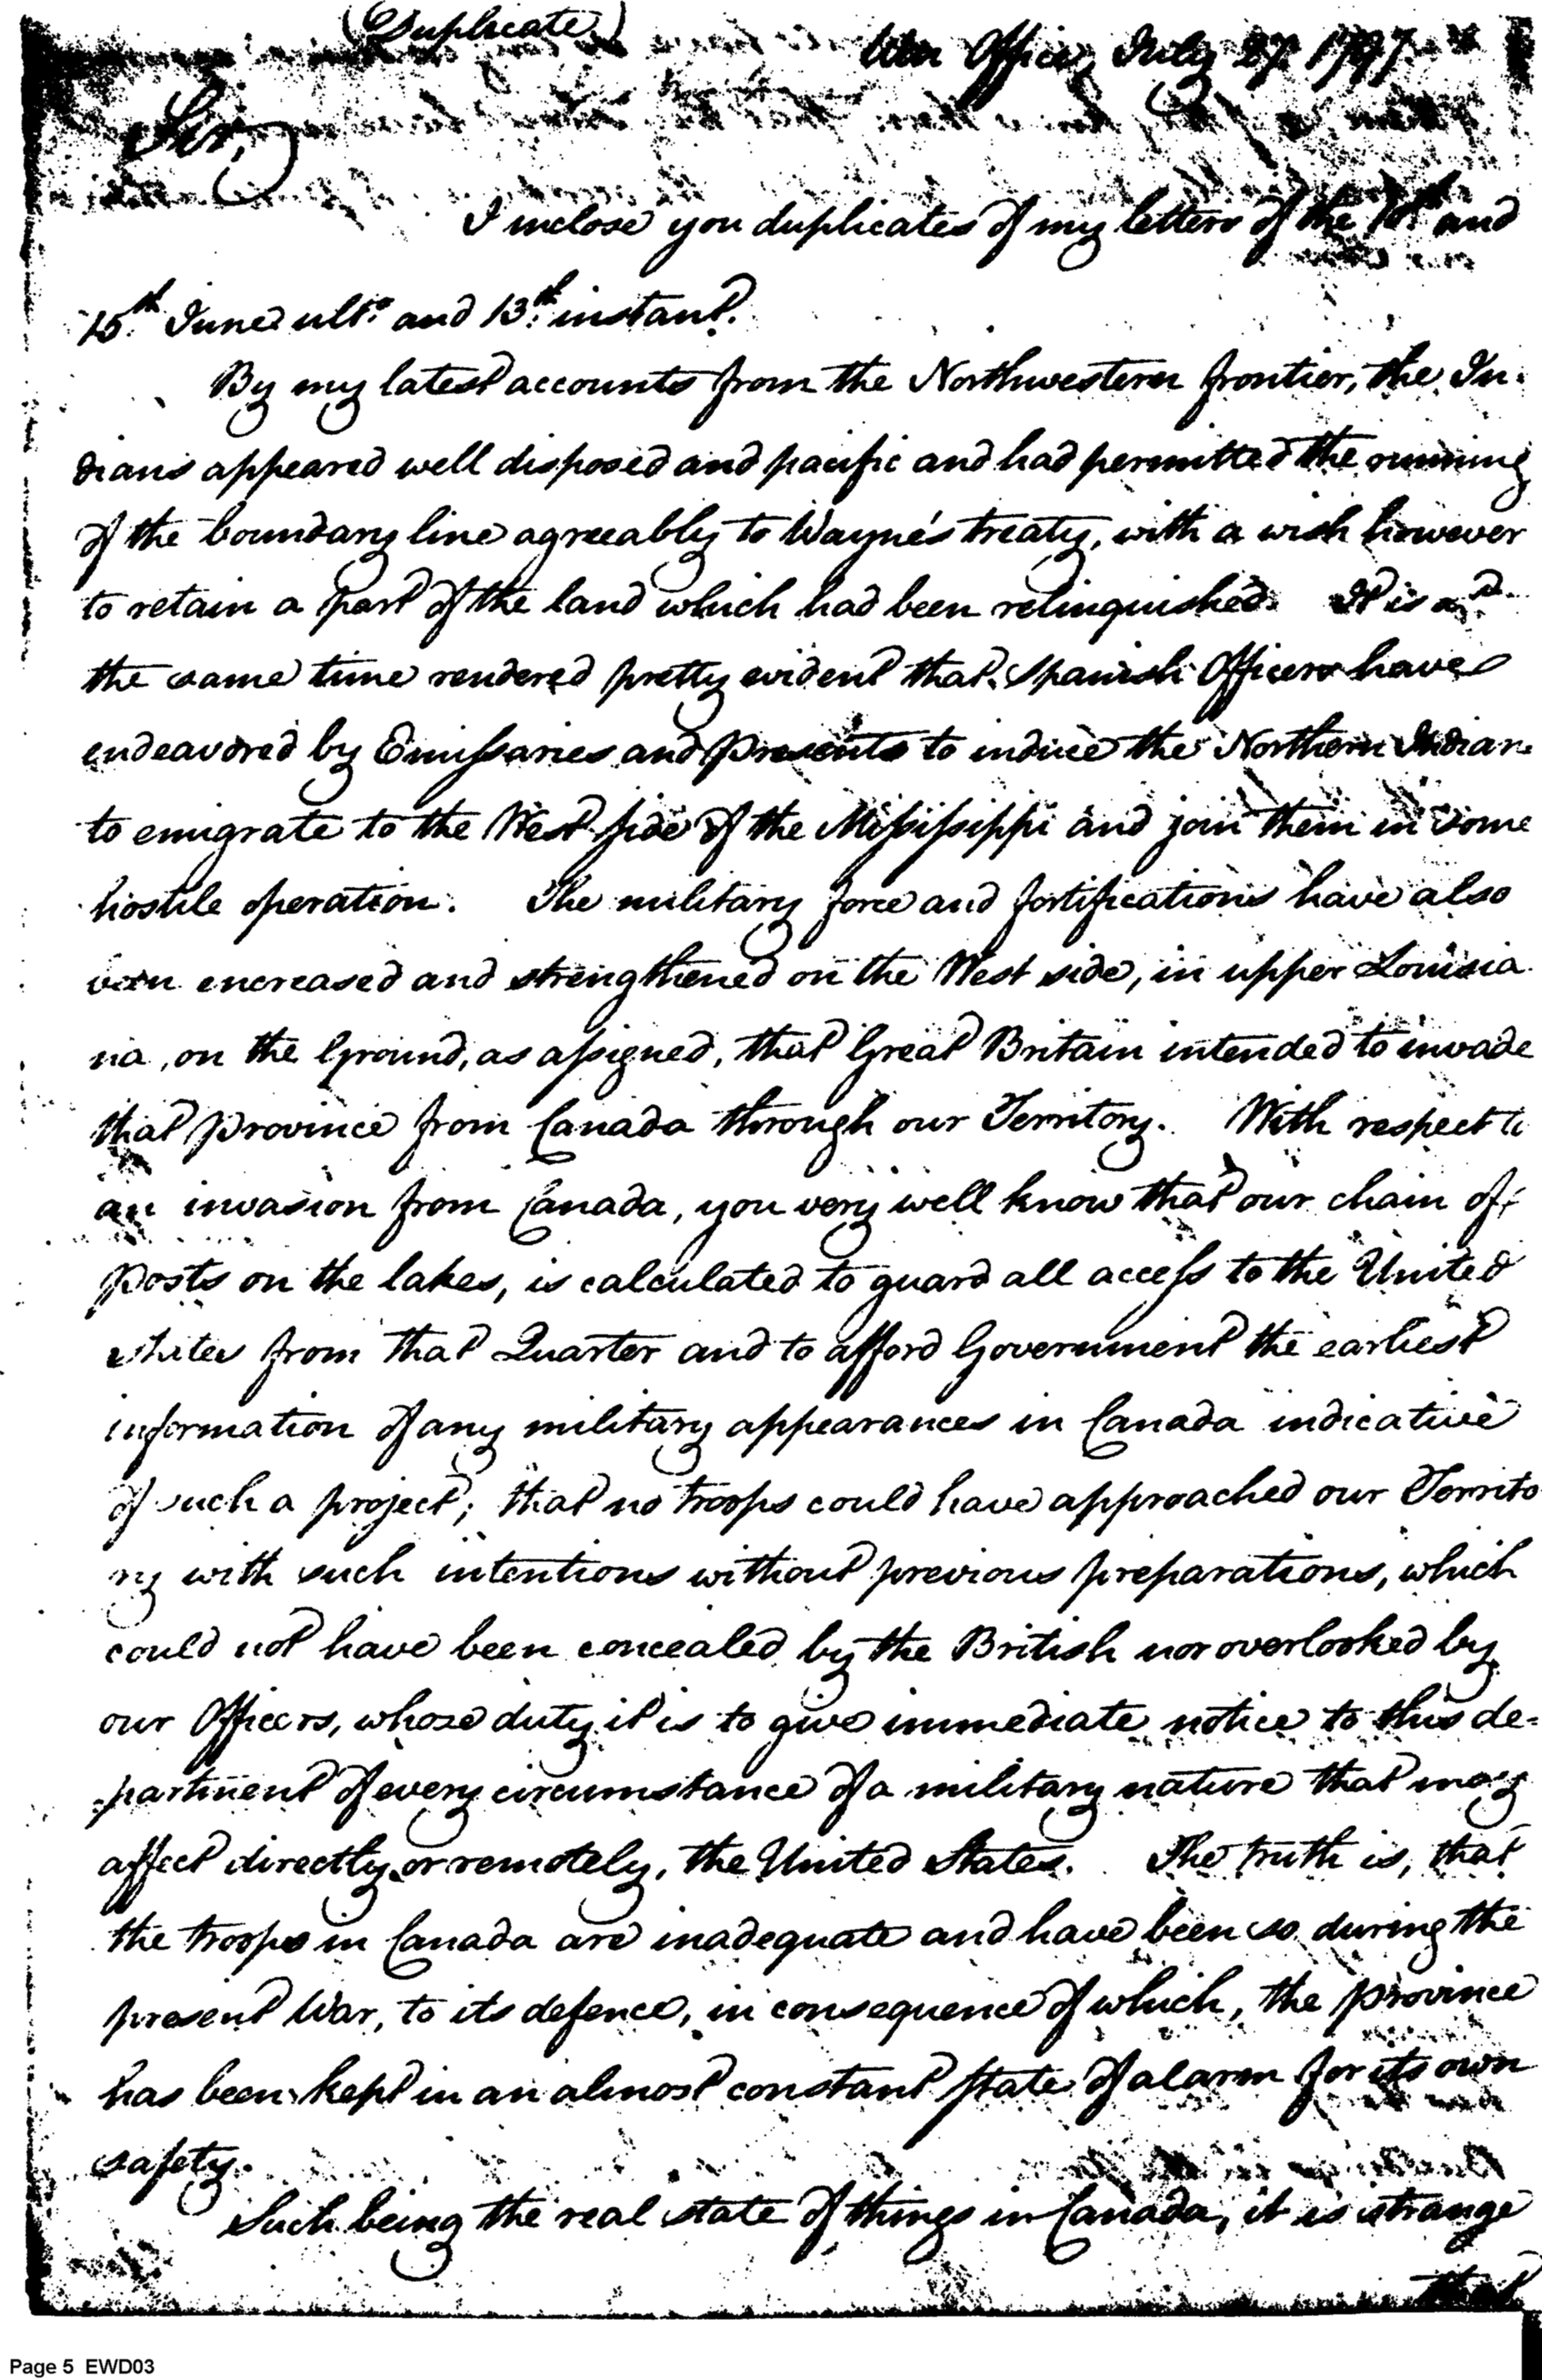 (Duplicate)
War Office, July 27. 1797.
Sir,
I inclose you duplicates of my letters of the and
15th June ulto. and 13th instant.
By my latest accounts from the Northwestern frontier, the In-
dians appeared well disposed and pacific and had permitted the running
of the boundary line agreeably to Wayne's treaty, with a wish however
to retain a part of the land which had been relinquished. It is at
the same time rendered pretty evident that Spanish Officers have
endeavored by Emissaries and presents to induce the Northern Indians
to emigrate to the West side of the Missisippi and join them in some
hostile operation. The military force and fortifications have also
been encreased and strengthened on the West side, in upper Louisia-
na, on the Ground, as assigned, that Great Britain intended to invade
that province from Canada through our Territory. With respect to
an invasion from Canada, you very well know that our chain of
posts on the lakes, is calculated to guard all access to the United
States from that Quarter and to afford Government the earliest
information of any military appearances in Canada indicative
of such a project; that no troops could have approached our Territo-
ry with such intentions without previous preparations, which
could not have been concealed by the British nor overlooked by
our Officers, whose duty it is to give immediate notice to this de-
partment of every circumstance of a military nature that may
affect directly or remotely, the United States. The truth is, that
the troops in Canada are inadequate and have been so during the
present War, to its defence, in consequence of which, the province
has been kept in an almost constant state of alarm for its own
safety.
Such being the real state of things in Canada, it is strange
that
Page 5 EWD03